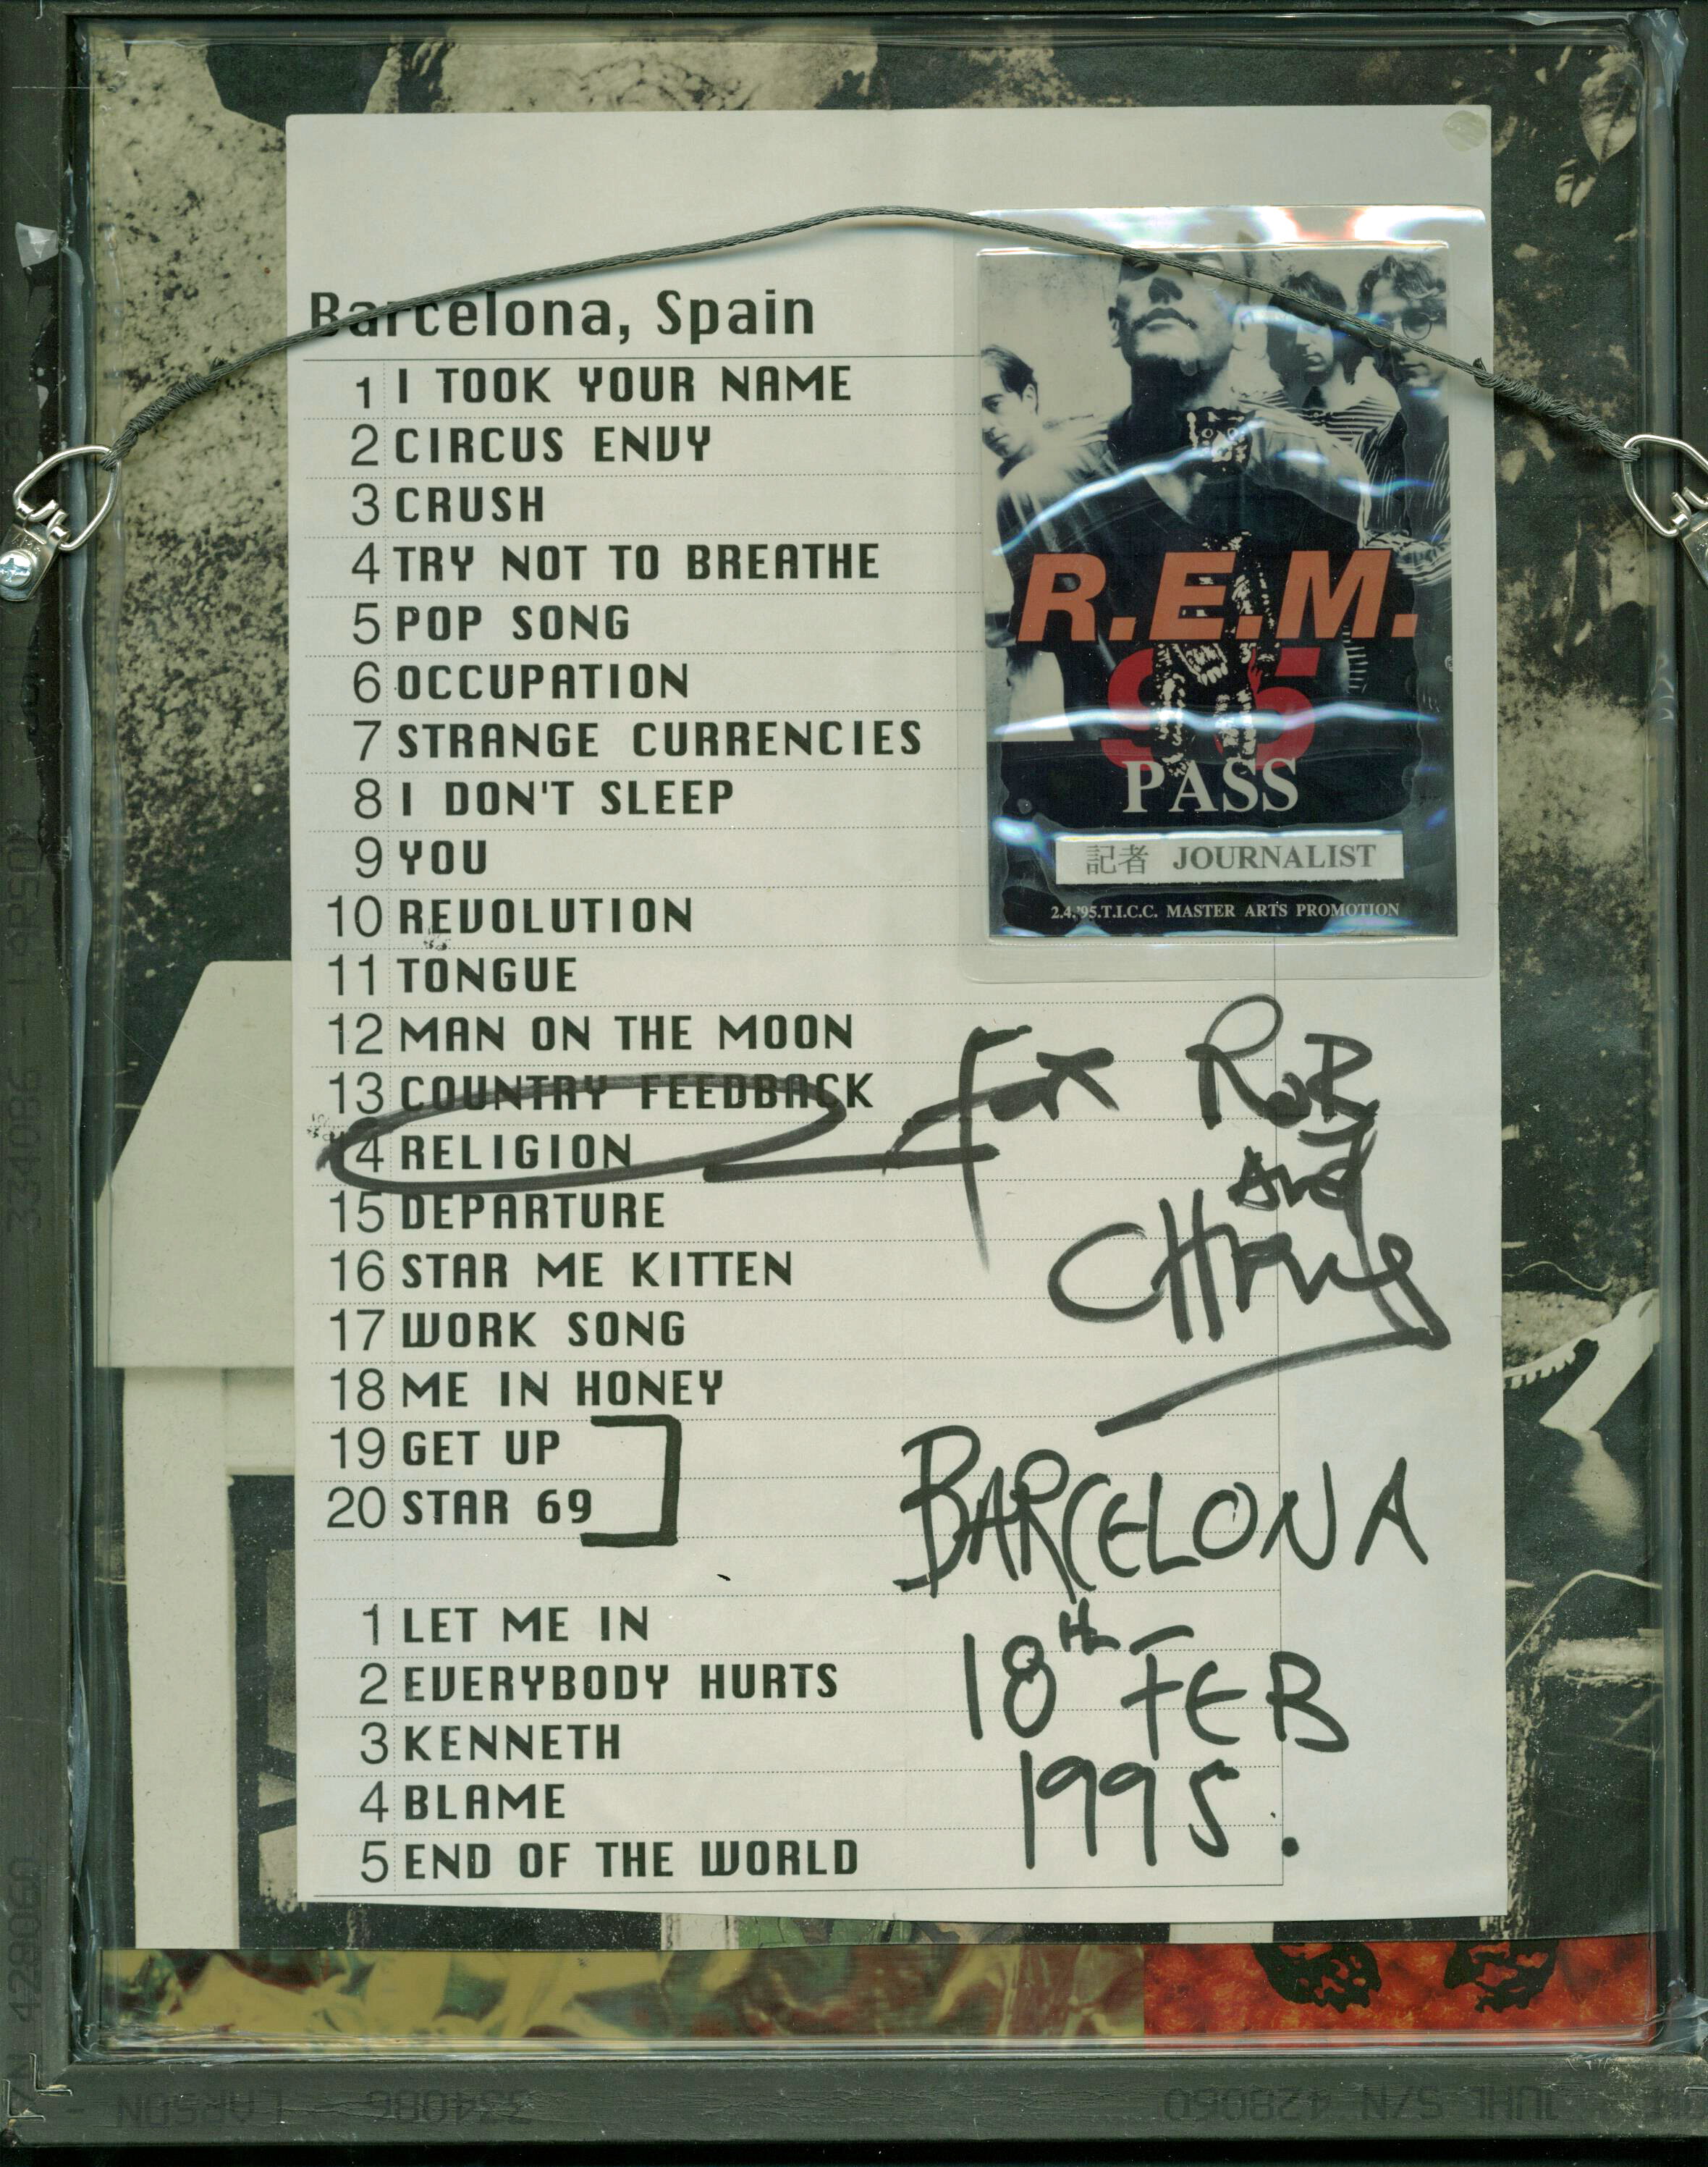 Barcelona, Spain
1 I TOOK YOUR NAME
2 CIRCUS ENVY
3 CRUSH
4 TRY NOT TO BREATHE
5 POP SONG
6 OCCUPATION
7 STRANGE CURRENCIES
8 I DON'T SLEEP
9 YOU
10 REVOLUTION
11 TONGUE
12 MAN ON THE MOON
13 COUNTRY FEEDBACK
14 RELIGION
15 DEPARTURE
16 STAR ME KITTEN
17 WORK SONG
18 ME IN HONEY
19 GET UP
20 STAR 69
1 LET ME IN
2 EVERYBODY HURTS
3 KENNETH
4 BLAME
5 END OF THE WORLD
R.E.M.
95
PASS
記者 JOURNALIST
2.4.'95.T.I.C.C. MASTER ARTS PROMOTION
For Rob
and
BARCELONA
18th FEB
1995.
334086 - LARSON
S/N 428060
334086 LARSON -
JUHL S/N 428060